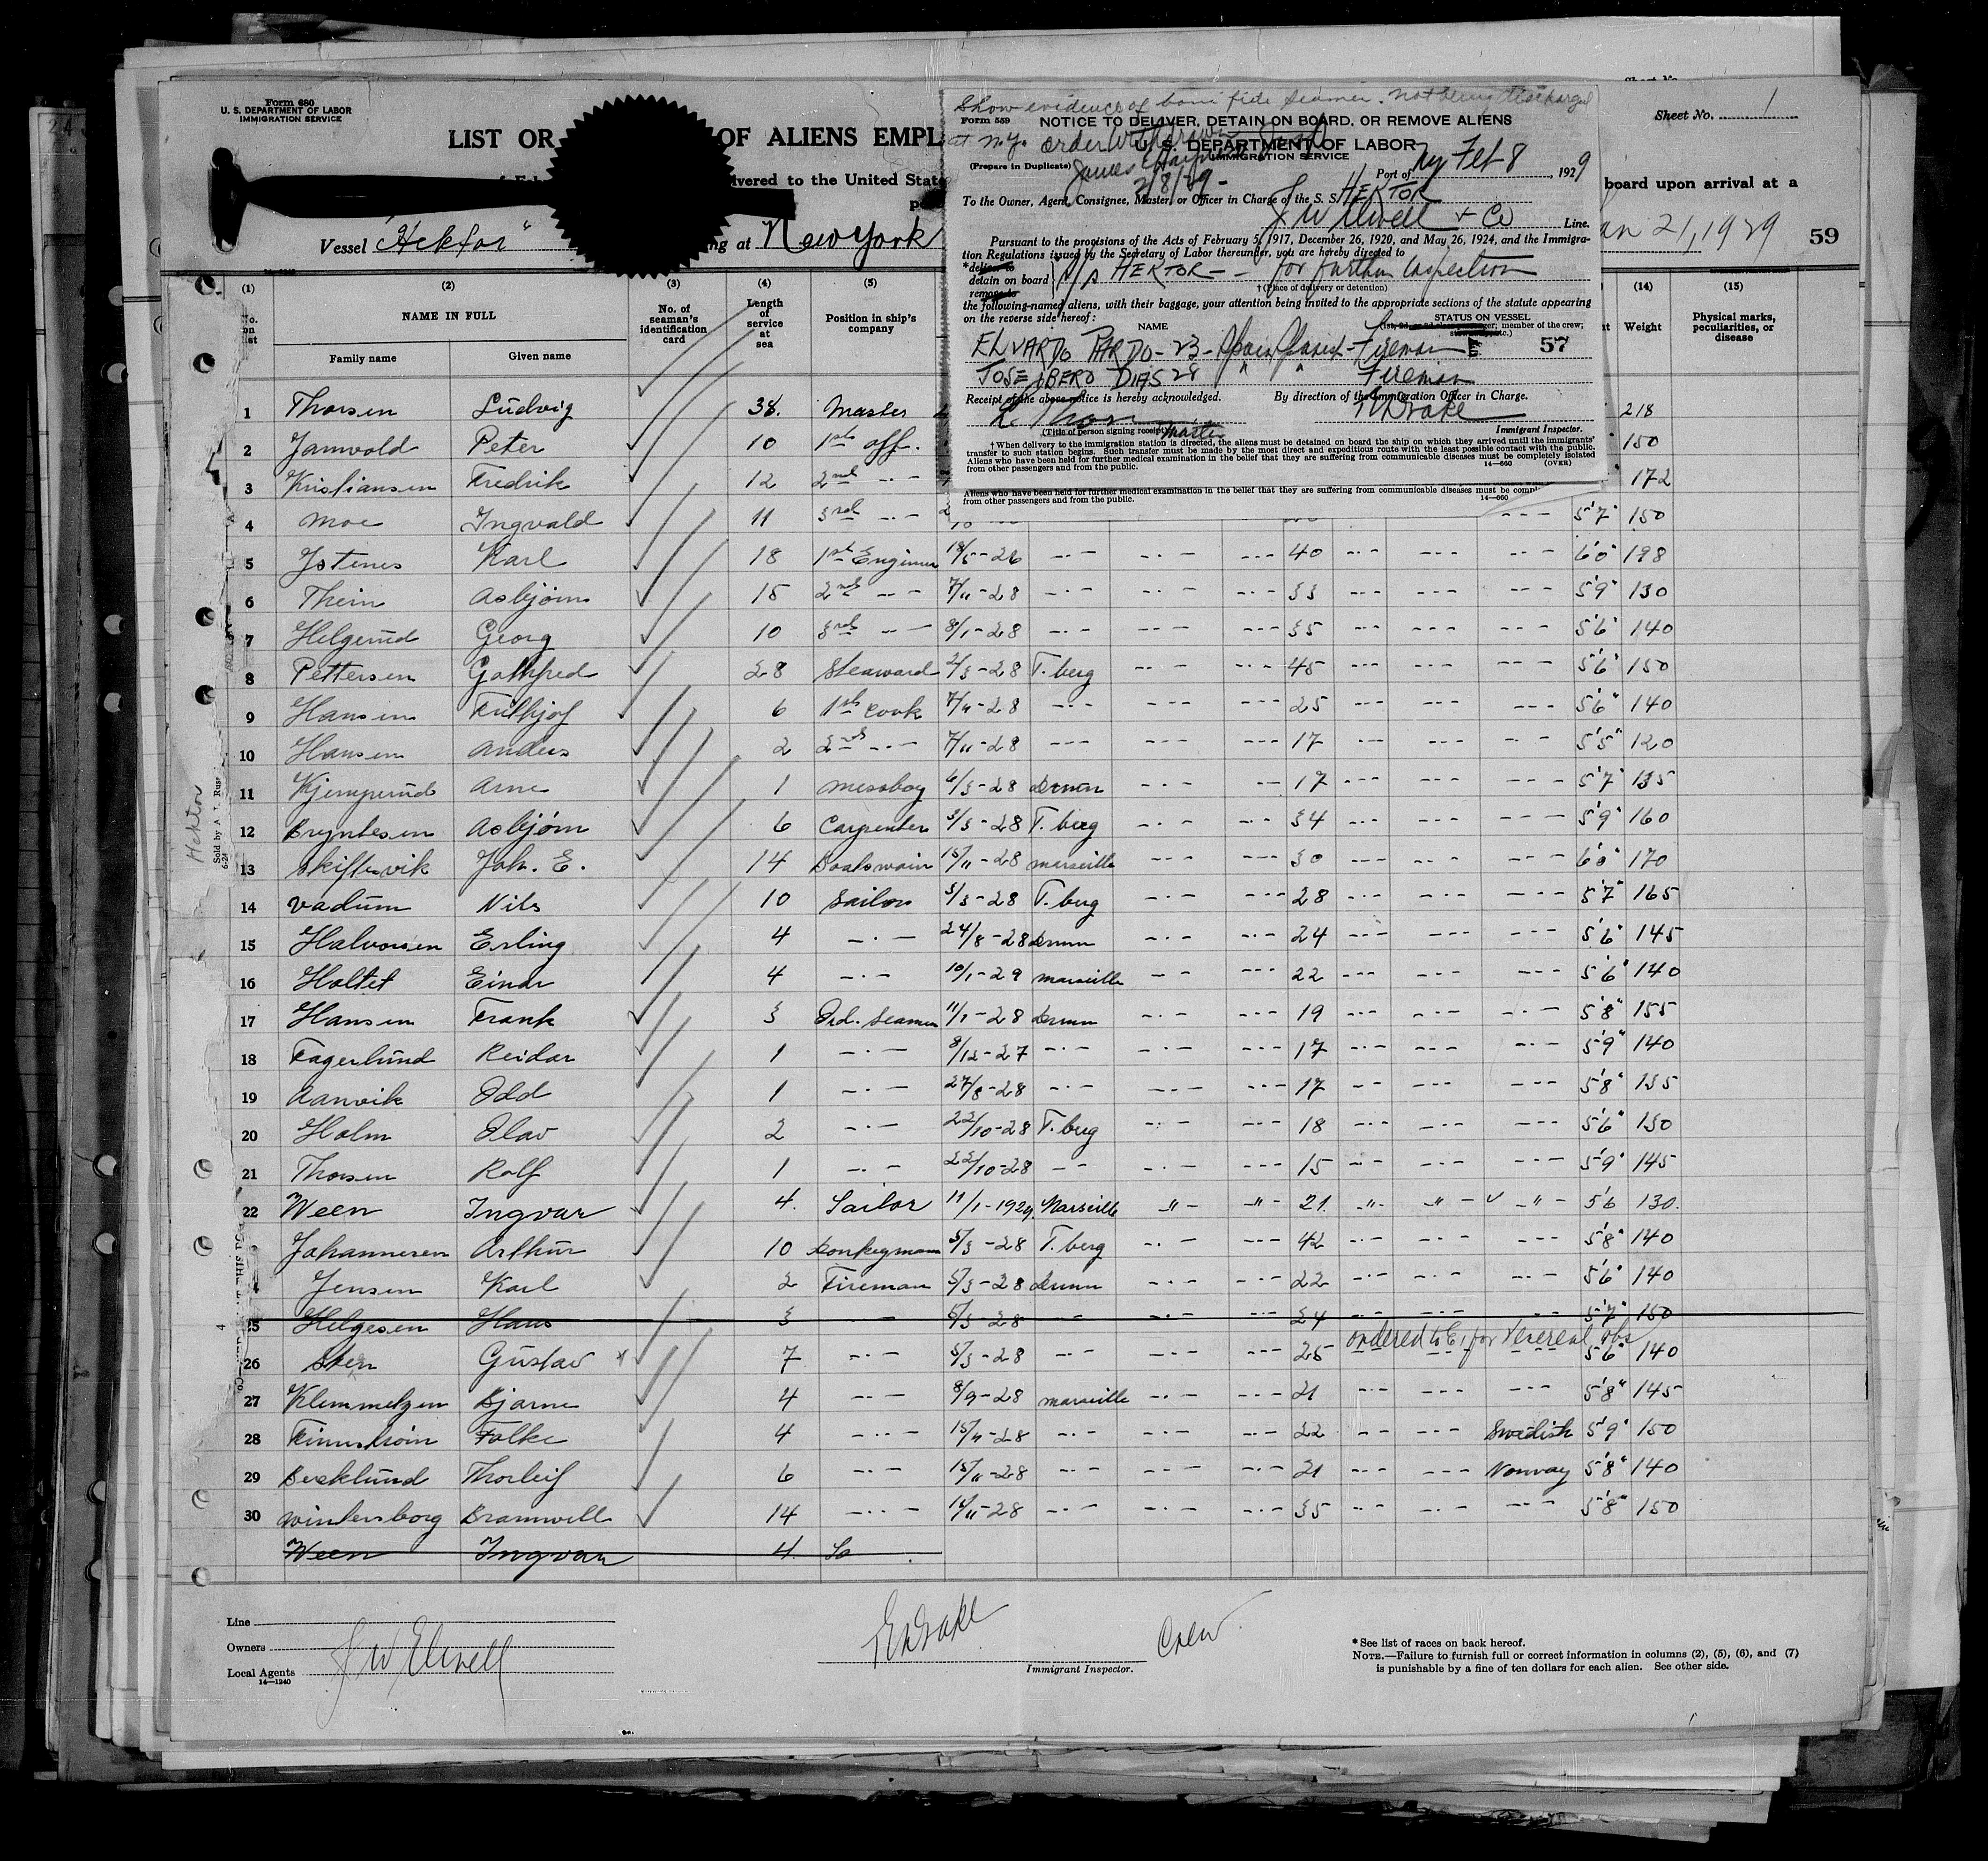 Form 680
U. S. DEPARTMENT OF LABOR
IMMIGRATION SERVICE
LIST OR OF ALIENS EMPL
Sheet No. 1
livered to the United State
board upon arrival at a
Vessel "Hektor" ng at New York
an 21, 1929 59
Show evidence of bona fide seamen. Not being discharged
Form 559 NOTICE TO DELIVER, DETAIN ON BOARD, OR REMOVE ALIENS
at N.Y. order withdrawn
U. S. DEPARTMENT OF LABOR
IMMIGRATION SERVICE
(Prepare in Duplicate) James
2/8/29-
Port of NY Feb 8, 1929
To the Owner, Agent, Consignee, Master, or Officer in Charge of the S. S. HEKTOR
J W Elwell & Co Line.
Pursuant to the provisions of the Acts of February 5, 1917, December 26, 1920, and May 26, 1924, and the Immigra-
tion Regulations issued by the Secretary of Labor thereunder, you are hereby directed to
*deliver to
detain on board S/S HEKTOR - - for further inspection
remove to
† (Place of delivery or detention)
the following-named aliens, with their baggage, your attention being invited to the appropriate sections of the statute appearing
on the reverse side hereof:
NAME STATUS ON VESSEL
PARDO - 23 - Fireman 57
JOSE DIAS 28 " " Fireman
Receipt of the above notice is hereby acknowledged. By direction of the Immigration Officer in Charge.
L Thorsen Drake
(Title of person signing receipt) Master Immigrant Inspector.
† When delivery to the immigration station is directed, the aliens must be detained on board the ship on which they arrived until the immigrants'
transfer to such station begins. Such transfer must be made by the most direct and expeditious route with the least possible contact with the public.
Aliens who have been held for further medical examination in the belief that they are suffering from communicable diseases must be completely isolated
from other passengers and from the public. 14—660 (OVER)
Aliens who have been held for further medical examination in the belief that they are suffering from communicable diseases must be compl
from other passengers and from the public. 14—660
(1) (2) (3) (4) (5) (14) (15)
No. on list NAME IN FULL No. of seaman's identification card Length of service at sea Position in ship's company Weight Physical marks, peculiarities, or disease
Family name Given name
1 Thorsen Ludvig 38. Master 218
2 Peter 10 1st off. 150
3 Kristiansen Fredrik 12 2nd -·- 172
4 Moe Ingvald 11 3rd -·- 5'7" 150
5 Karl 18 1st Engineer 18/5-26 40 6'0" 198
6 Thein Asbjørn 15 2nd -·- 7/11-28 33 5'9" 130
7 Helgerud Georg 10 3rd -·- 8/1-28 35 5'6" 140
8 Pettersen Gothfred 28 Steaward 2/3-28 T.berg 45 5'6" 150
9 Hansen Frithjof 6 1st cook 7/11-28 25 5'6" 140
10 Hansen Anders 2 2nd -·- 7/11-28 17 5'5" 120
11 Kjemperud Arne 1 Messboy 6/3-28 Drmn 17 5'7" 135
12 Bryntesen Asbjørn 6 Carpenter 5/3-28 T.berg 34 5'9" 160
13 Skiftesvik Joh. E. 14 Boatswain 15/11-28 Marseille 30 6'0" 170
14 Vadum Nils 10 Sailor 5/3-28 T.berg 28 5'7" 165
15 Halvorsen Erling 4 -·- 24/8-28 Drmn 24 5'6" 145
16 Holtet Einar 4 -·- 10/1-29 Marseille 22 5'6" 140
17 Hansen Frank 3 Ord. Seamen 11/1-28 Drmn 19 5'8" 155
18 Fagerlund Reidar 1 -·- 8/12-27 17 5'9" 140
19 Aanvik Odd 1 -·- 27/8-28 17 5'8" 135
20 Holm Olav 2 -·- 22/10-28 T.berg 18 5'6" 130
21 Thorsen Rolf 1 -·- 22/10-28 15 5'9" 145
22 Ween Ingvar 4. Sailor 11/1-1929. Marseille 21. 5'6 130.
Johannesen Arthur 10 Donkeyman 5/3-28 T.berg 42 5'8" 140
4 Jensen Karl 2 Fireman 5/3-28 Drmn 22 5'6" 140
25 Helgesen Hans 3 5/3-28 24 5'7" 150
ordered to E.I. for venereal obs
26 Sten Gustav 7 -·- 5/3-28 25 5'6" 140
27 Klemmetzen Bjarne 4 -·- 8/9-28 Marseille 21 5'8" 145
28 Folke 4 -·- 15/11-28 22 Swedish 5'9" 150
29 Thorleif 6 -·- 15/11-28 21 Norway 5'8" 140
30 Wintersborg Bramwell 14 -·- 35 5'8" 150
Ween Ingvar 4. Sa
Hektor
Sold by A
6-24
Line
Owners
Local Agents J W Elwell
14—1240
Drake
Immigrant Inspector.
Crew
*See list of races on back hereof.
NOTE.—Failure to furnish full or correct information in columns (2), (5), (6), and (7)
is punishable by a fine of ten dollars for each alien. See other side.